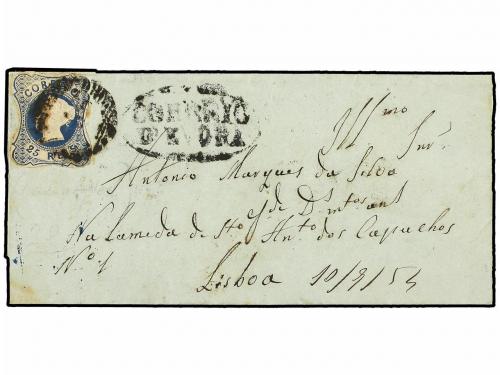 CORREIO
25 REIS
CORREIO
Illmo Snr.
Antonio Marques da Silva
Na lameda de Sto Anto dos Capuchos
No. 1
Lisboa 10/9/54